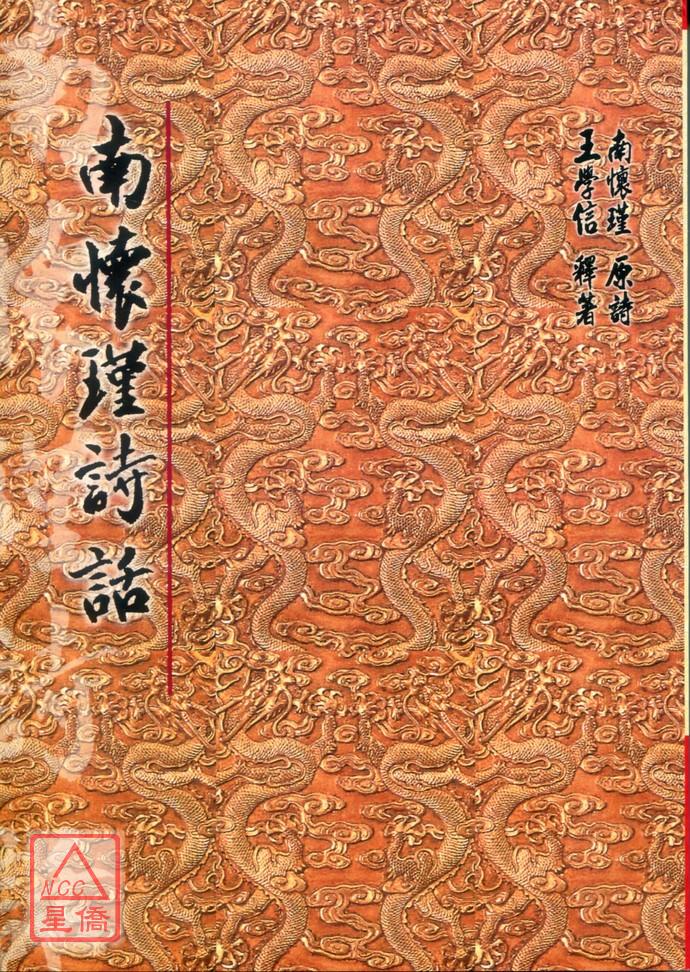 南懷瑾 原詩
王學信 釋著
南懷瑾詩話
NCC
星僑